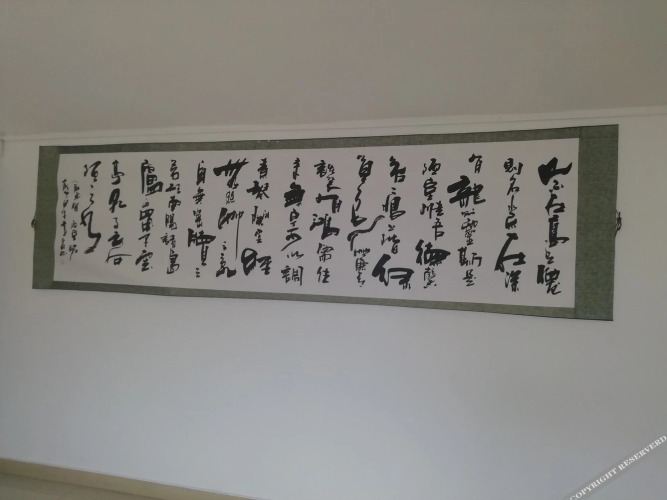 山不在高有僊
則名水不在深
有龍則靈斯是
陋室惟吾德馨
苔痕上階綠
草色入簾青
談笑有鴻儒往
來無白丁可以調
素琴閱金經
無絲竹之亂
耳無案牘之
勞形南陽諸葛
廬西蜀子雲
亭孔子云何
陋之有
陋室銘
COPYRIGHT RESERVERD